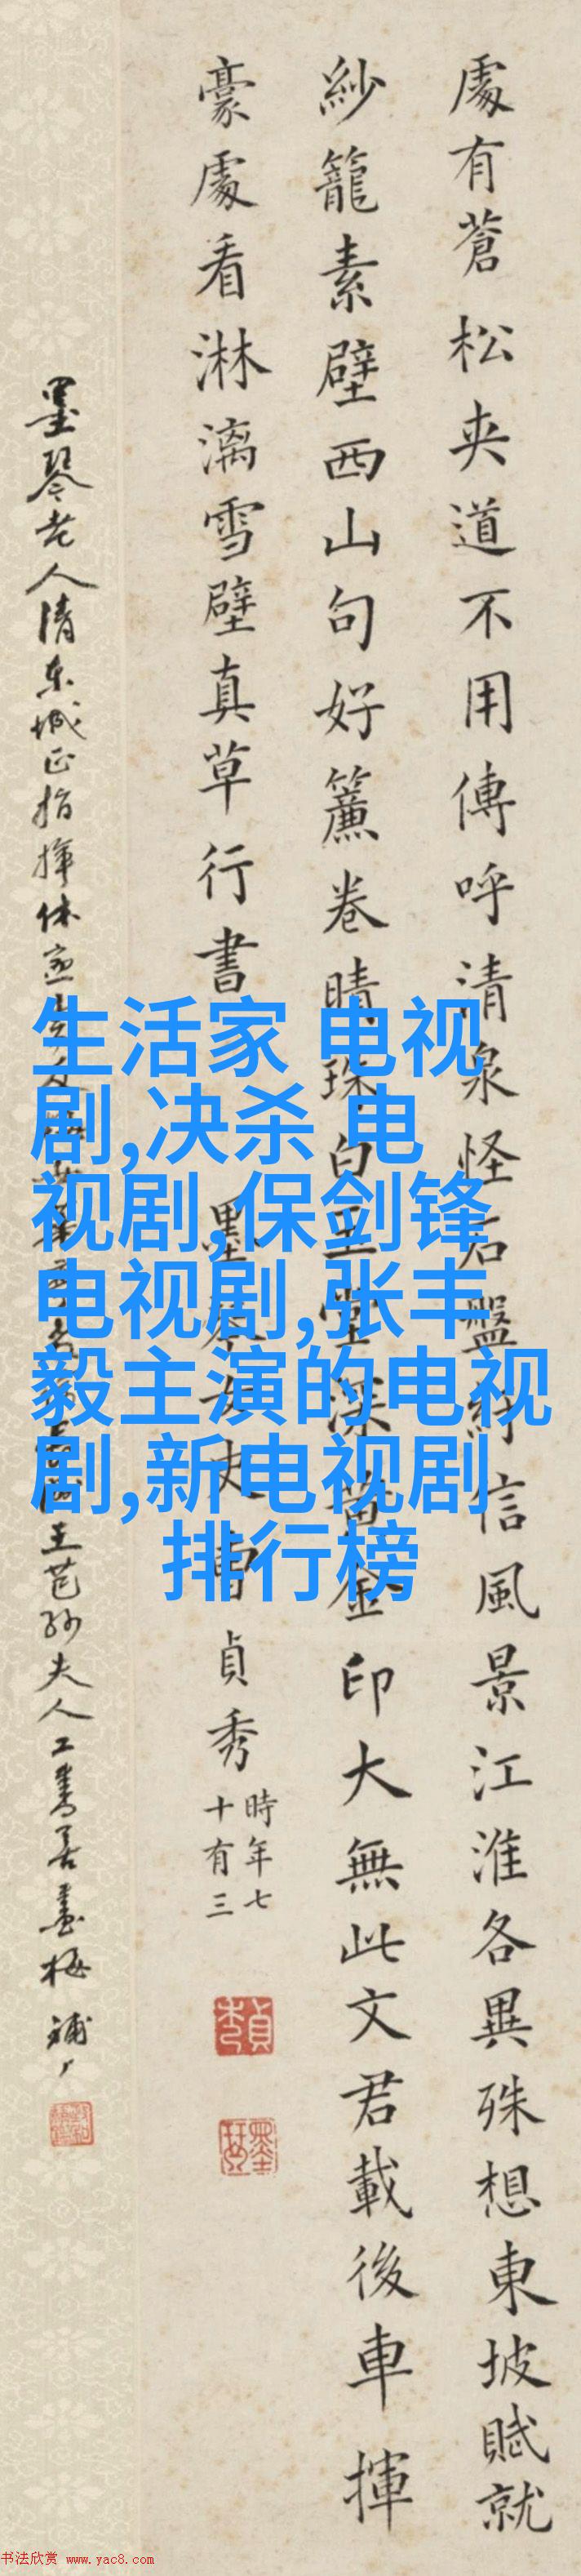 處有蒼松夾道不用傳呼清泉怪石盤紆信風景江淮各異殊想東坡賦就
紗籠素壁西山句好簾卷晴珠白玉堂深黃金印大無此文君載後車揮
豪處看淋漓雪壁真草行書
墨琴女史曹貞秀
時年七
十有三
墨琴老人清东城正指揮休 王芑孙夫人工書善畫梅
生活家 电视
剧,决杀 电
视剧,保剑锋
电视剧,张丰
毅主演的电视
剧,新电视剧
排行榜
书法欣赏 www.yac8.com